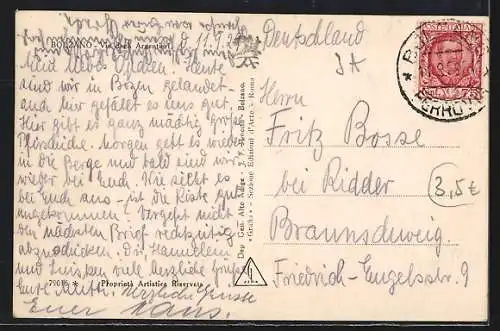 BOLZANO - Via degli Argentieri
Deutschland
Mein liebes Heute
sind wir in Bozen gelandet
und hier gefällt es uns gut.
Hier gibt es ganz mächtig große
Pfirsiche. Morgen geht es wieder
in die Berge und bald sind wir
wieder bei Euch. Wie sieht es
bei Euch aus - ist die Kiste gut
angekommen? Vergeßt nicht
den nächsten Brief rechtzeitig
abzuschicken. Dir,
und herzliche Grüße
Eure
Herzliche Grüße
Euer Hans.
79016 * Proprietà Artistica Riservata
Dep. Gen. Alto Adige - J. F. - Bolzano.
Sezione Edizioni d'Arte - Roma
Herrn
Fritz Bosse
bei Ridder
Braunschweig
Friedrich-Engelsstr. 9
3,5€